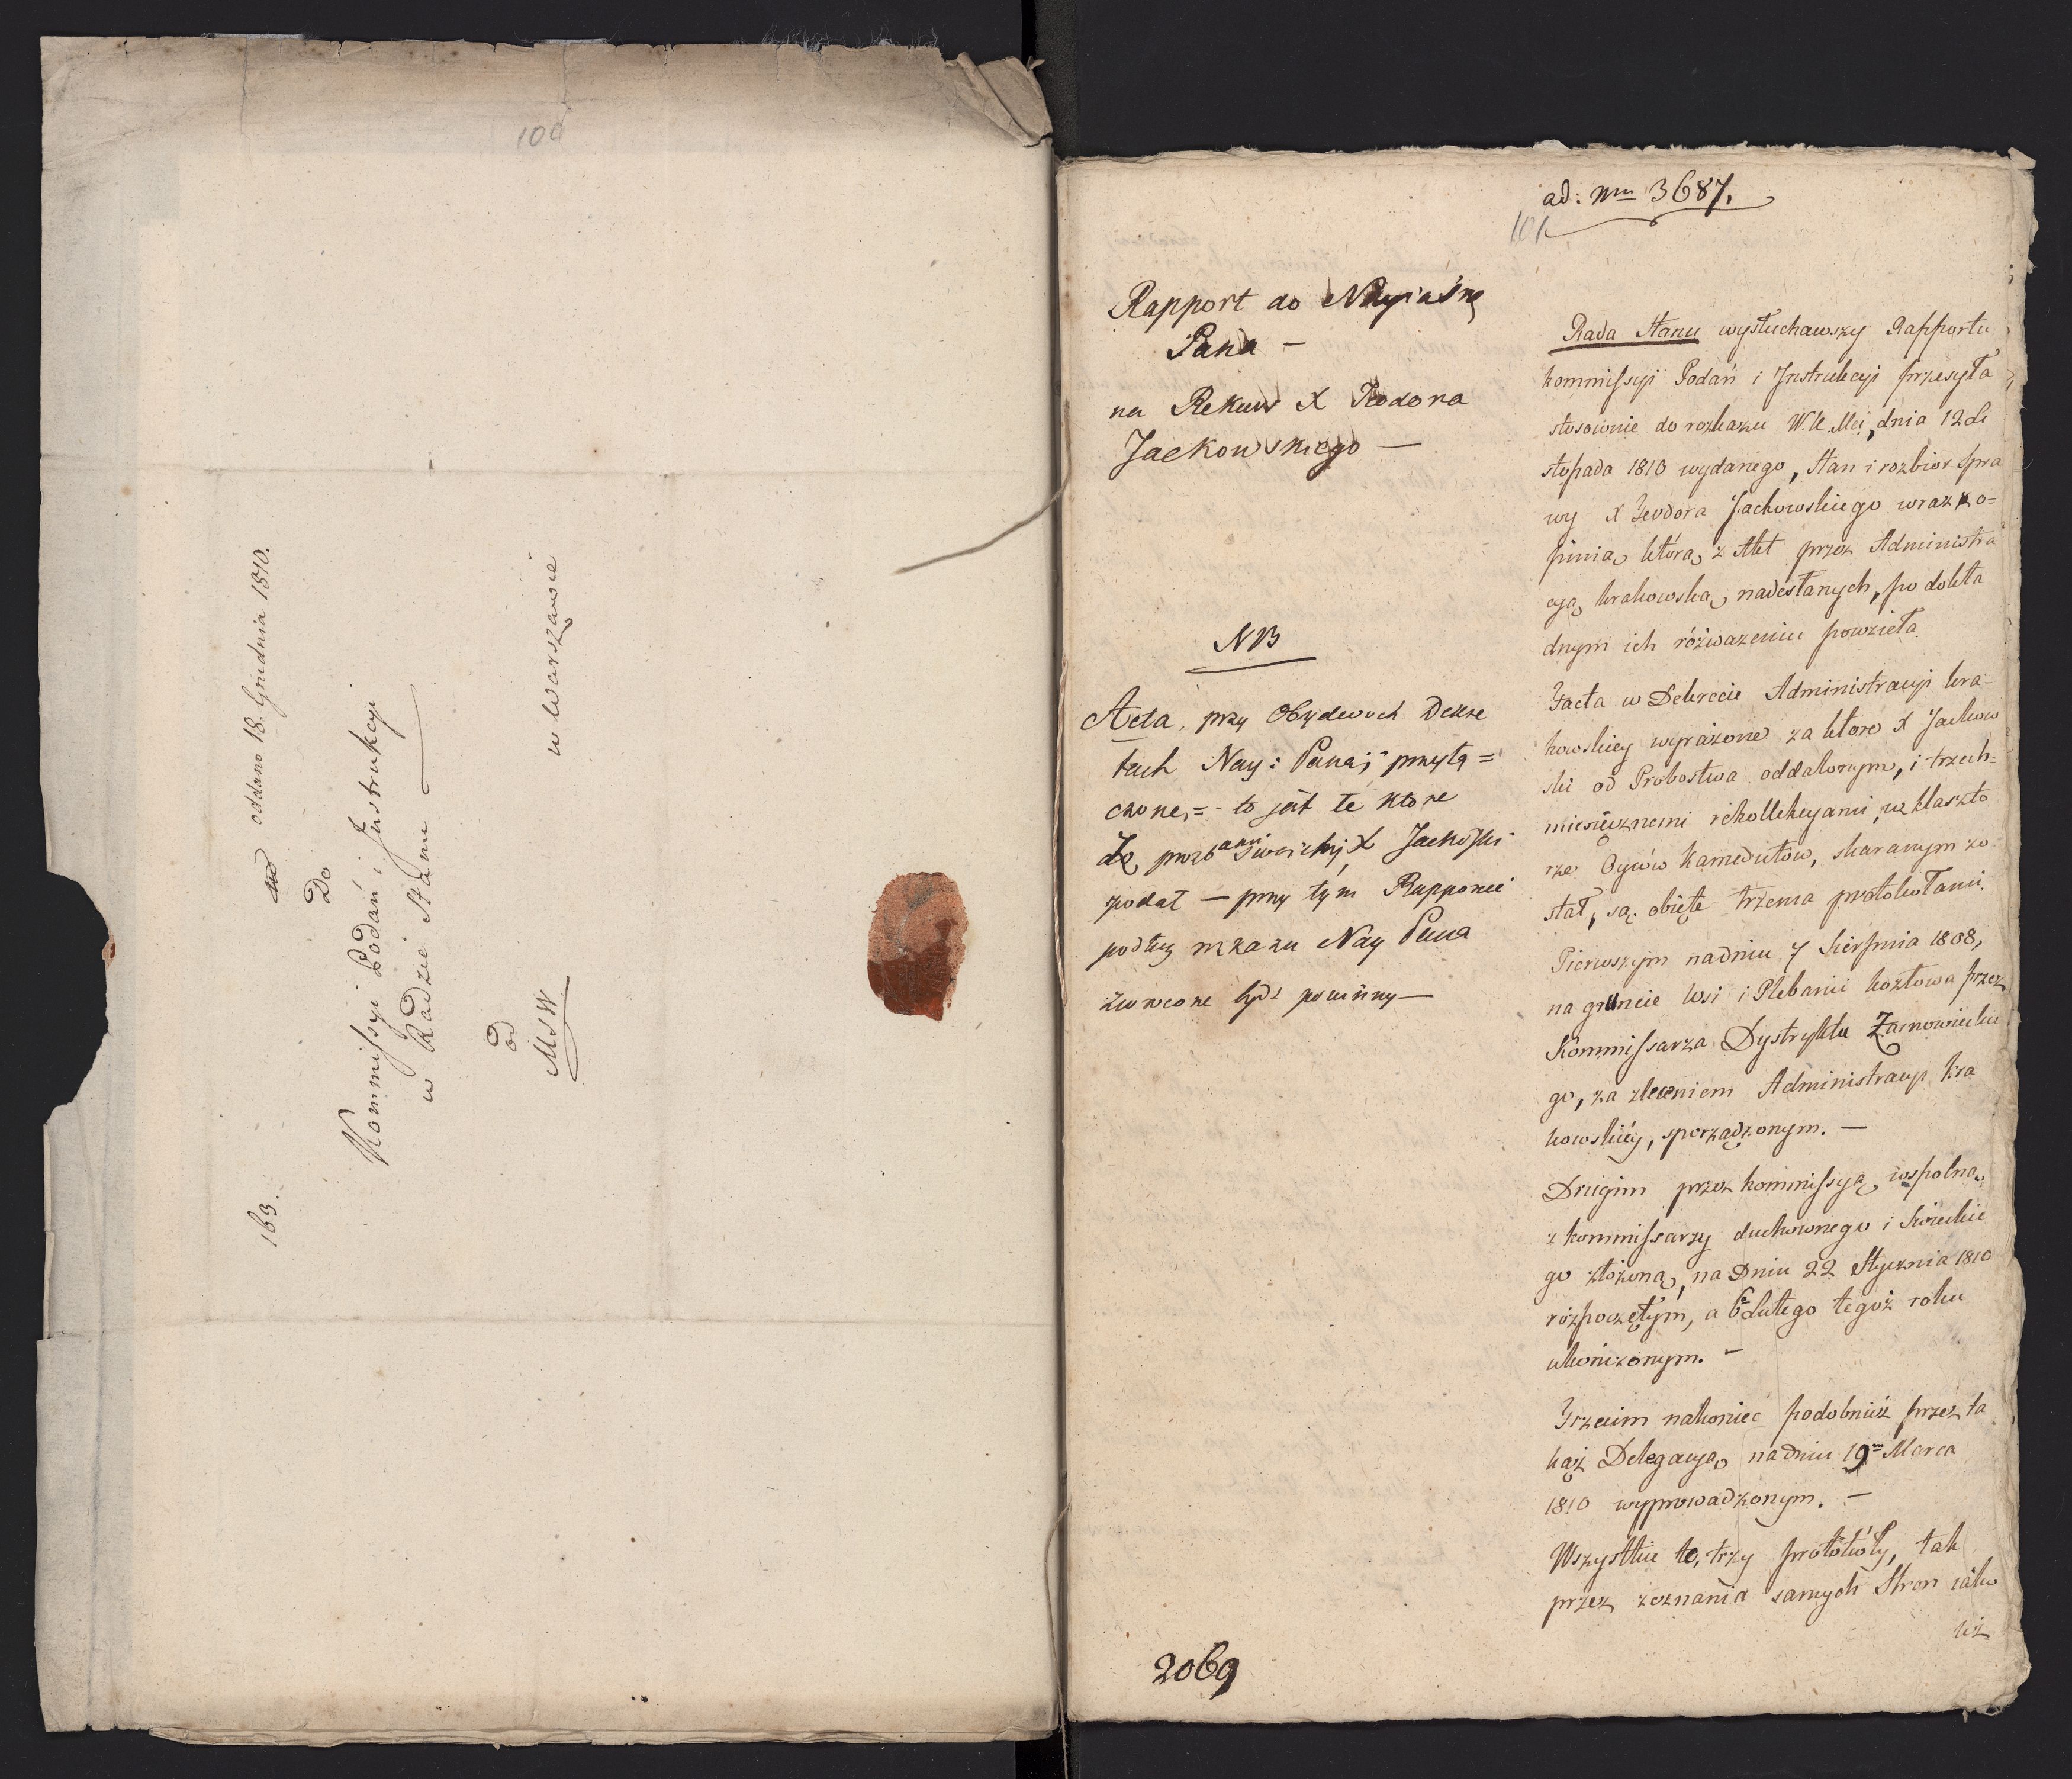 100
163.
oddano 18. Grudnia 1810.
Do
Kommissyi Podań i Instrukcyi
w Radzie Stanu
od
MSW
w Warszawie
ad: Nrm 3687.
101
Rapport do Nayiaśne
Pana —
na Rekurs X Teodora
Jackowskiego —
NB
Acta, przy Obydwoch Dekre
tach Nay: Pana; przyłą=
czone,=- to jest te ktore
do prozb X Jackowski
podał — przy tym Rapporcie
podług rozkazu Nay Pana
zwrocone bydź powinny —
2069
Rada Stanu wysłuchawszy Rapportu
kommissyi Podań i Instrukcyi przesyła
stosownie do rozkazu W.K.Mci, dnia 12 Li
stopada 1810 wydanego, Stan i rozbior Spra
wy X Teodora Jackowskiego wraz z o=
pinią, którą z Akt przez Administra
cyą krakowską nadesłanych, po dokła
dnym ich rózważeniu powzieła.
Facta w Dekrecie Administracyi kra-
kowskiey wyrażone za które X Jackow
ski od Probostwa oddalonym, i trzech-
miesięcznemi rekollekcyami, w klaszto
rze Oyców Kamedułów, skaranym zo
stał, są obięte trzema protokołami.
Pierwszym na dniu 7 Sierpnia 1808,
na gruncie Wsi i Plebanii Kozłowa przez
Kommissarza Dystryktu Żarnowieckie
go, za zleceniem Administracyi kra
kowskiéy, sporządzonym. —
Drugim przez kommissyą wspolną,
z kommissarzy duchownego i Swieckie
go złożoną, na Dniu 22 Stycznia 1810
rozpoczętym, a 6 Lutego tegoż roku
ukończonym. —
Trzecim nakoniec podobnież przez tą
kąż Delegacyą, na dniu 19m Marca
1810 wyprowadzonym. —
Wszystkie te, trzy protokóły, tak
przez zeznania samych Stron iako
też